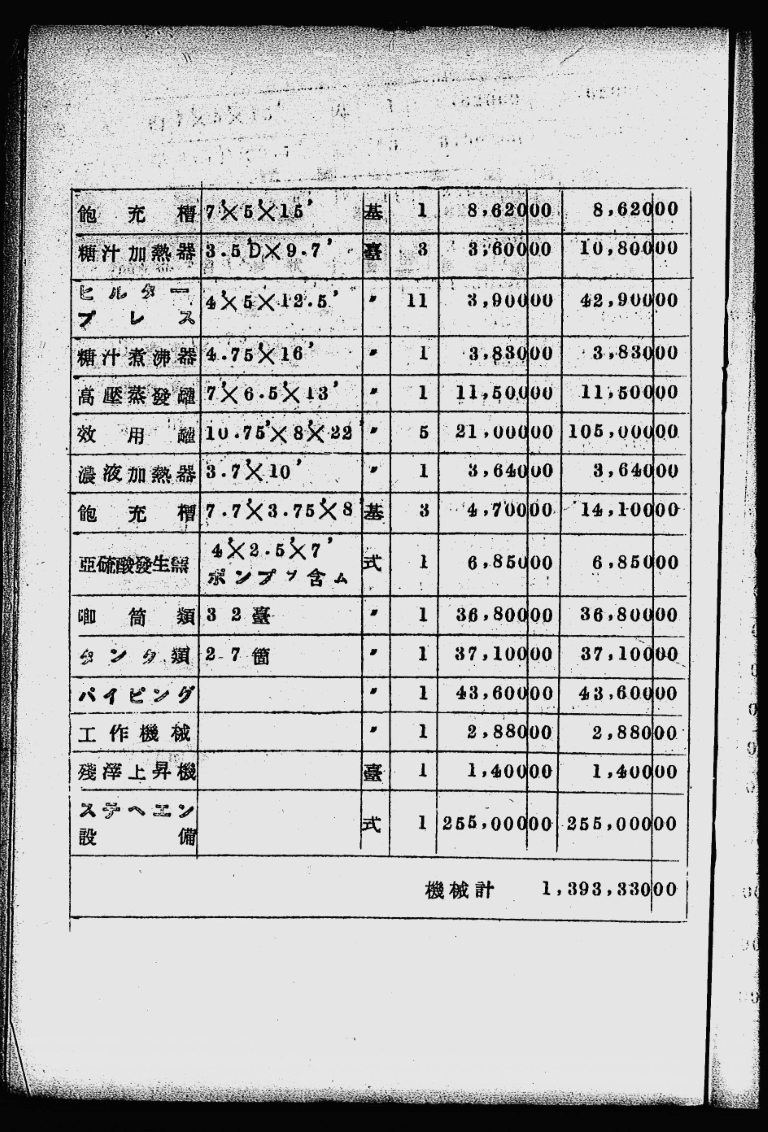 飽充槽 7'×5'×15' 基 1 8,62000 8,62000
糖汁加熱器 3.5'D×9.7' 臺 3 3,60000 10,80000
ヒルター
プレス 4'×5'×12.5' 〃 11 3,90000 42,90000
糖汁煮沸器 4.75'×16' 〃 1 3,83000 3,83000
高壓蒸發罐 7'×6.5'×13' 〃 1 11,50000 11,50000
效用罐 10.75'×8'×22' 〃 5 21,00000 105,00000
濃液加熱器 3.7'×10' 〃 1 3,64000 3,64000
飽充槽 7.7'×3.75'×8' 基 3 4,70000 14,10000
亞硫酸發生器 4'×2.5'×7'
ポンプヲ含ム 式 1 6,85000 6,85000
喞筒類 32臺 〃 1 36,80000 36,80000
タンク類 27箇 〃 1 37,10000 37,10000
パイピング 〃 1 43,60000 43,60000
工作機械 〃 1 2,88000 2,88000
殘滓上昇機 臺 1 1,40000 1,40000
ステヘエン
設備 式 1 255,00000 255,00000
機械計 1,393,33000